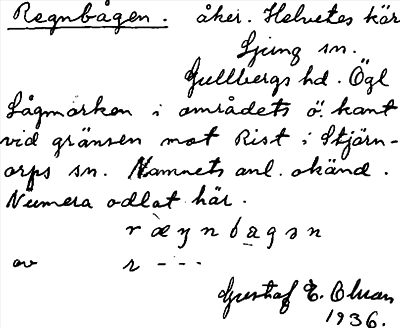 Regnbågen. åker. Helvetes kär
Ljung sn.
Gullbergs hd. Ögl
Lågmarken i områdets ö. kant
vid gränsen mot Rist i Stjärn-
orps sn. Namnets anl. okänd.
Numera odlat här.
r æ y n b a g ə n
av r - - -
Gustaf E.
1936.